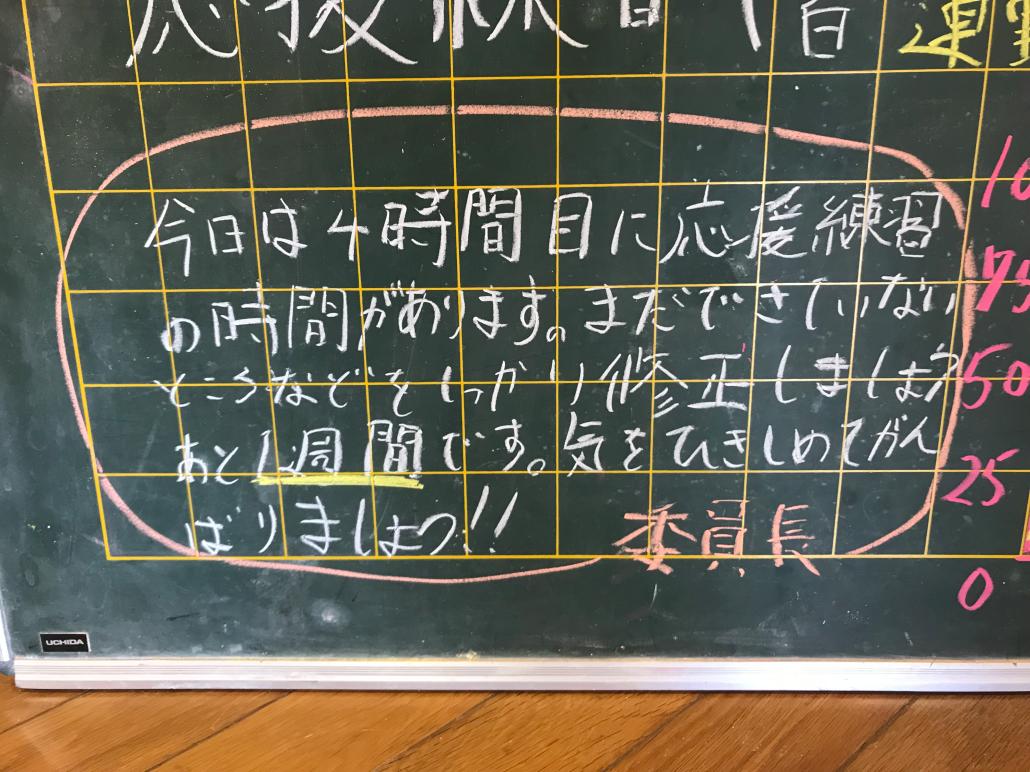 応援練習
日
運動
今日は4時間目に応援練習
の時間があります。まだできていない
ところなどをしっかり修正しましょう
あと1週間です。気をひきしめてがん
ばりましょう!!
委員長
10
75
50
25
0
UCHIDA